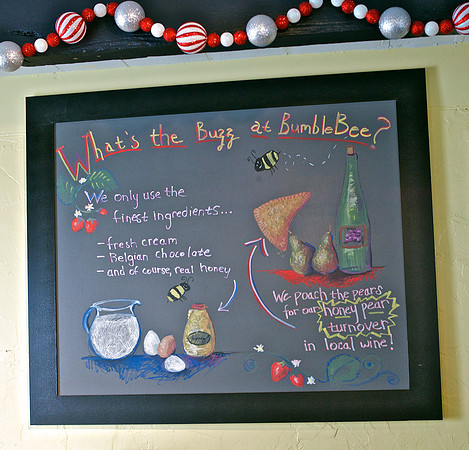 What's the Buzz at BumbleBee?
We only use the
finest ingredients...
- fresh cream
- Belgian chocolate
- and of course, real honey
We poach the pears
for our honey pear
turnover
in local wine!